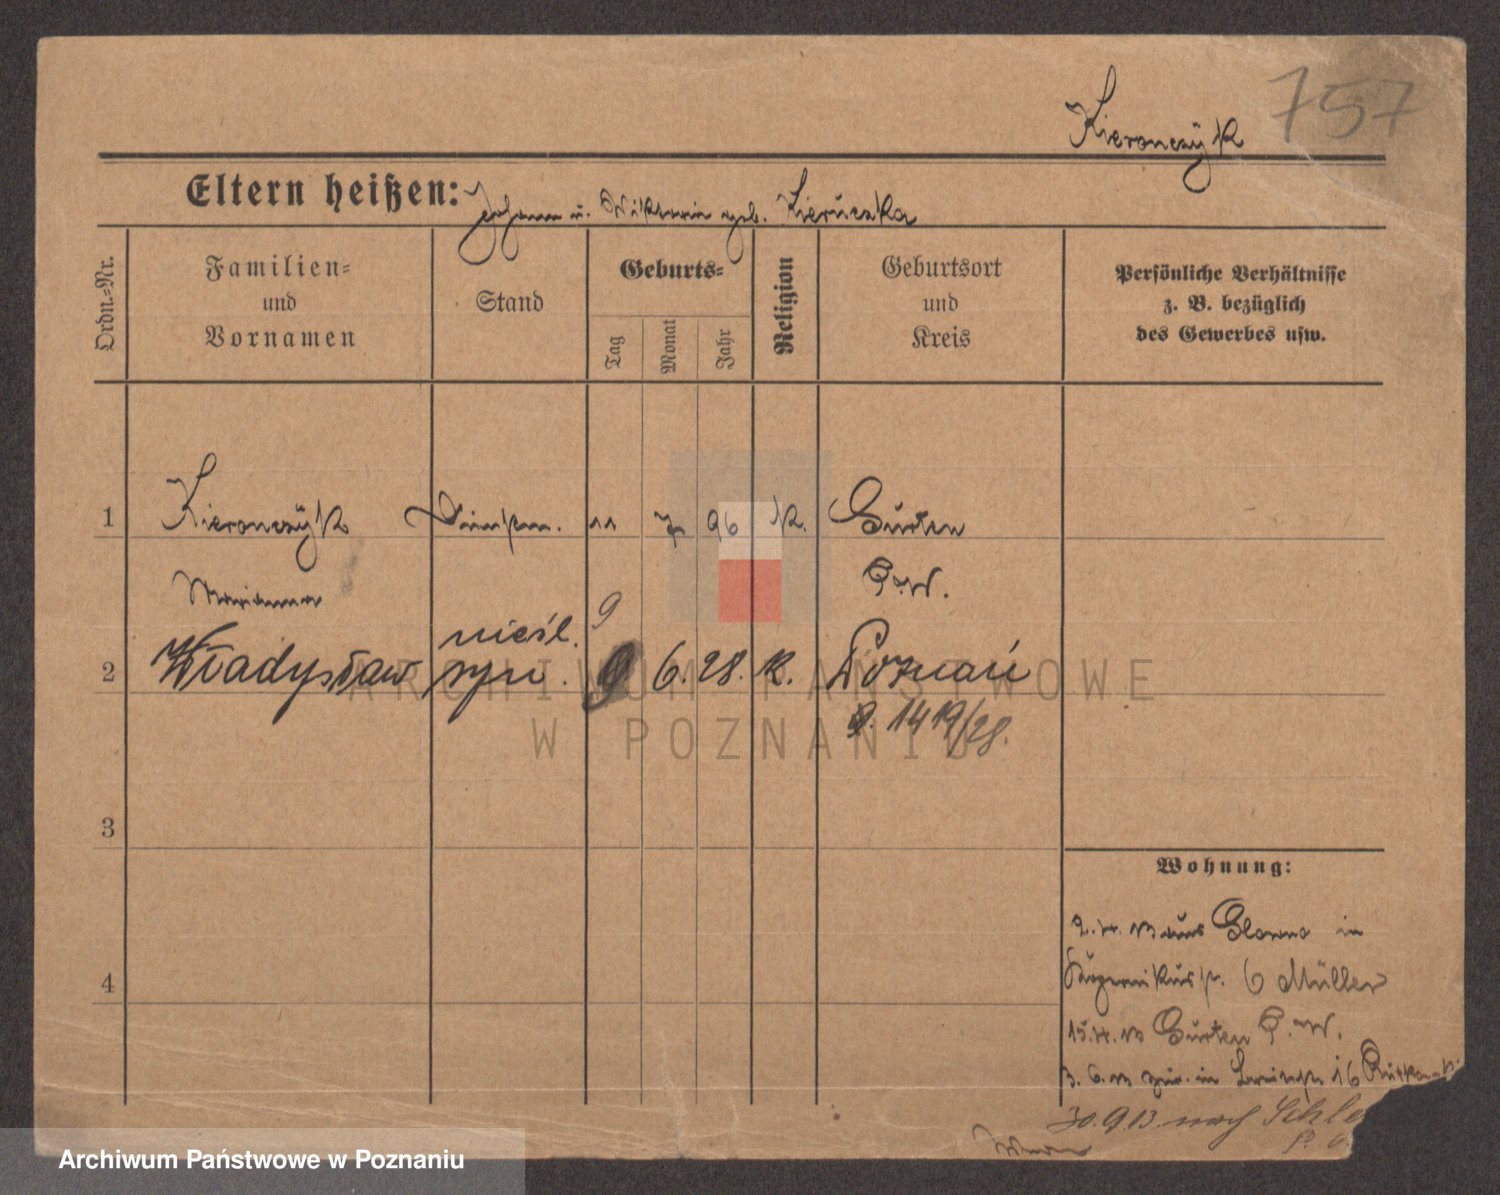 757
Kieronczÿk
Eltern heißen: Johann u. Wiktoria geb.
Ordn.-Nr.
Familien-
und
Vornamen
Stand
Geburts-
Tag
Monat
Jahr
Religion
Geburtsort
und
Kreis
Persönliche Verhältnisse
z. B. bezüglich
des Gewerbes usw.
1 Kieronczÿk 11 7 96 K. Gurten
Marianna P. W.
9
nieśl.
2 Władysław syn. 9 6. 28. k. Poznań
1419/28.
3
4
Wohnung:
2.4. 13 aus Glowno in
6 Müller
15.4. 13 Gurten P. W.
3. 6. 13 zur. in 16
30.9.13. nach Schle
ARCHIWUM PAŃSTWOWE
W POZNANIU
Archiwum Państwowe w Poznaniu